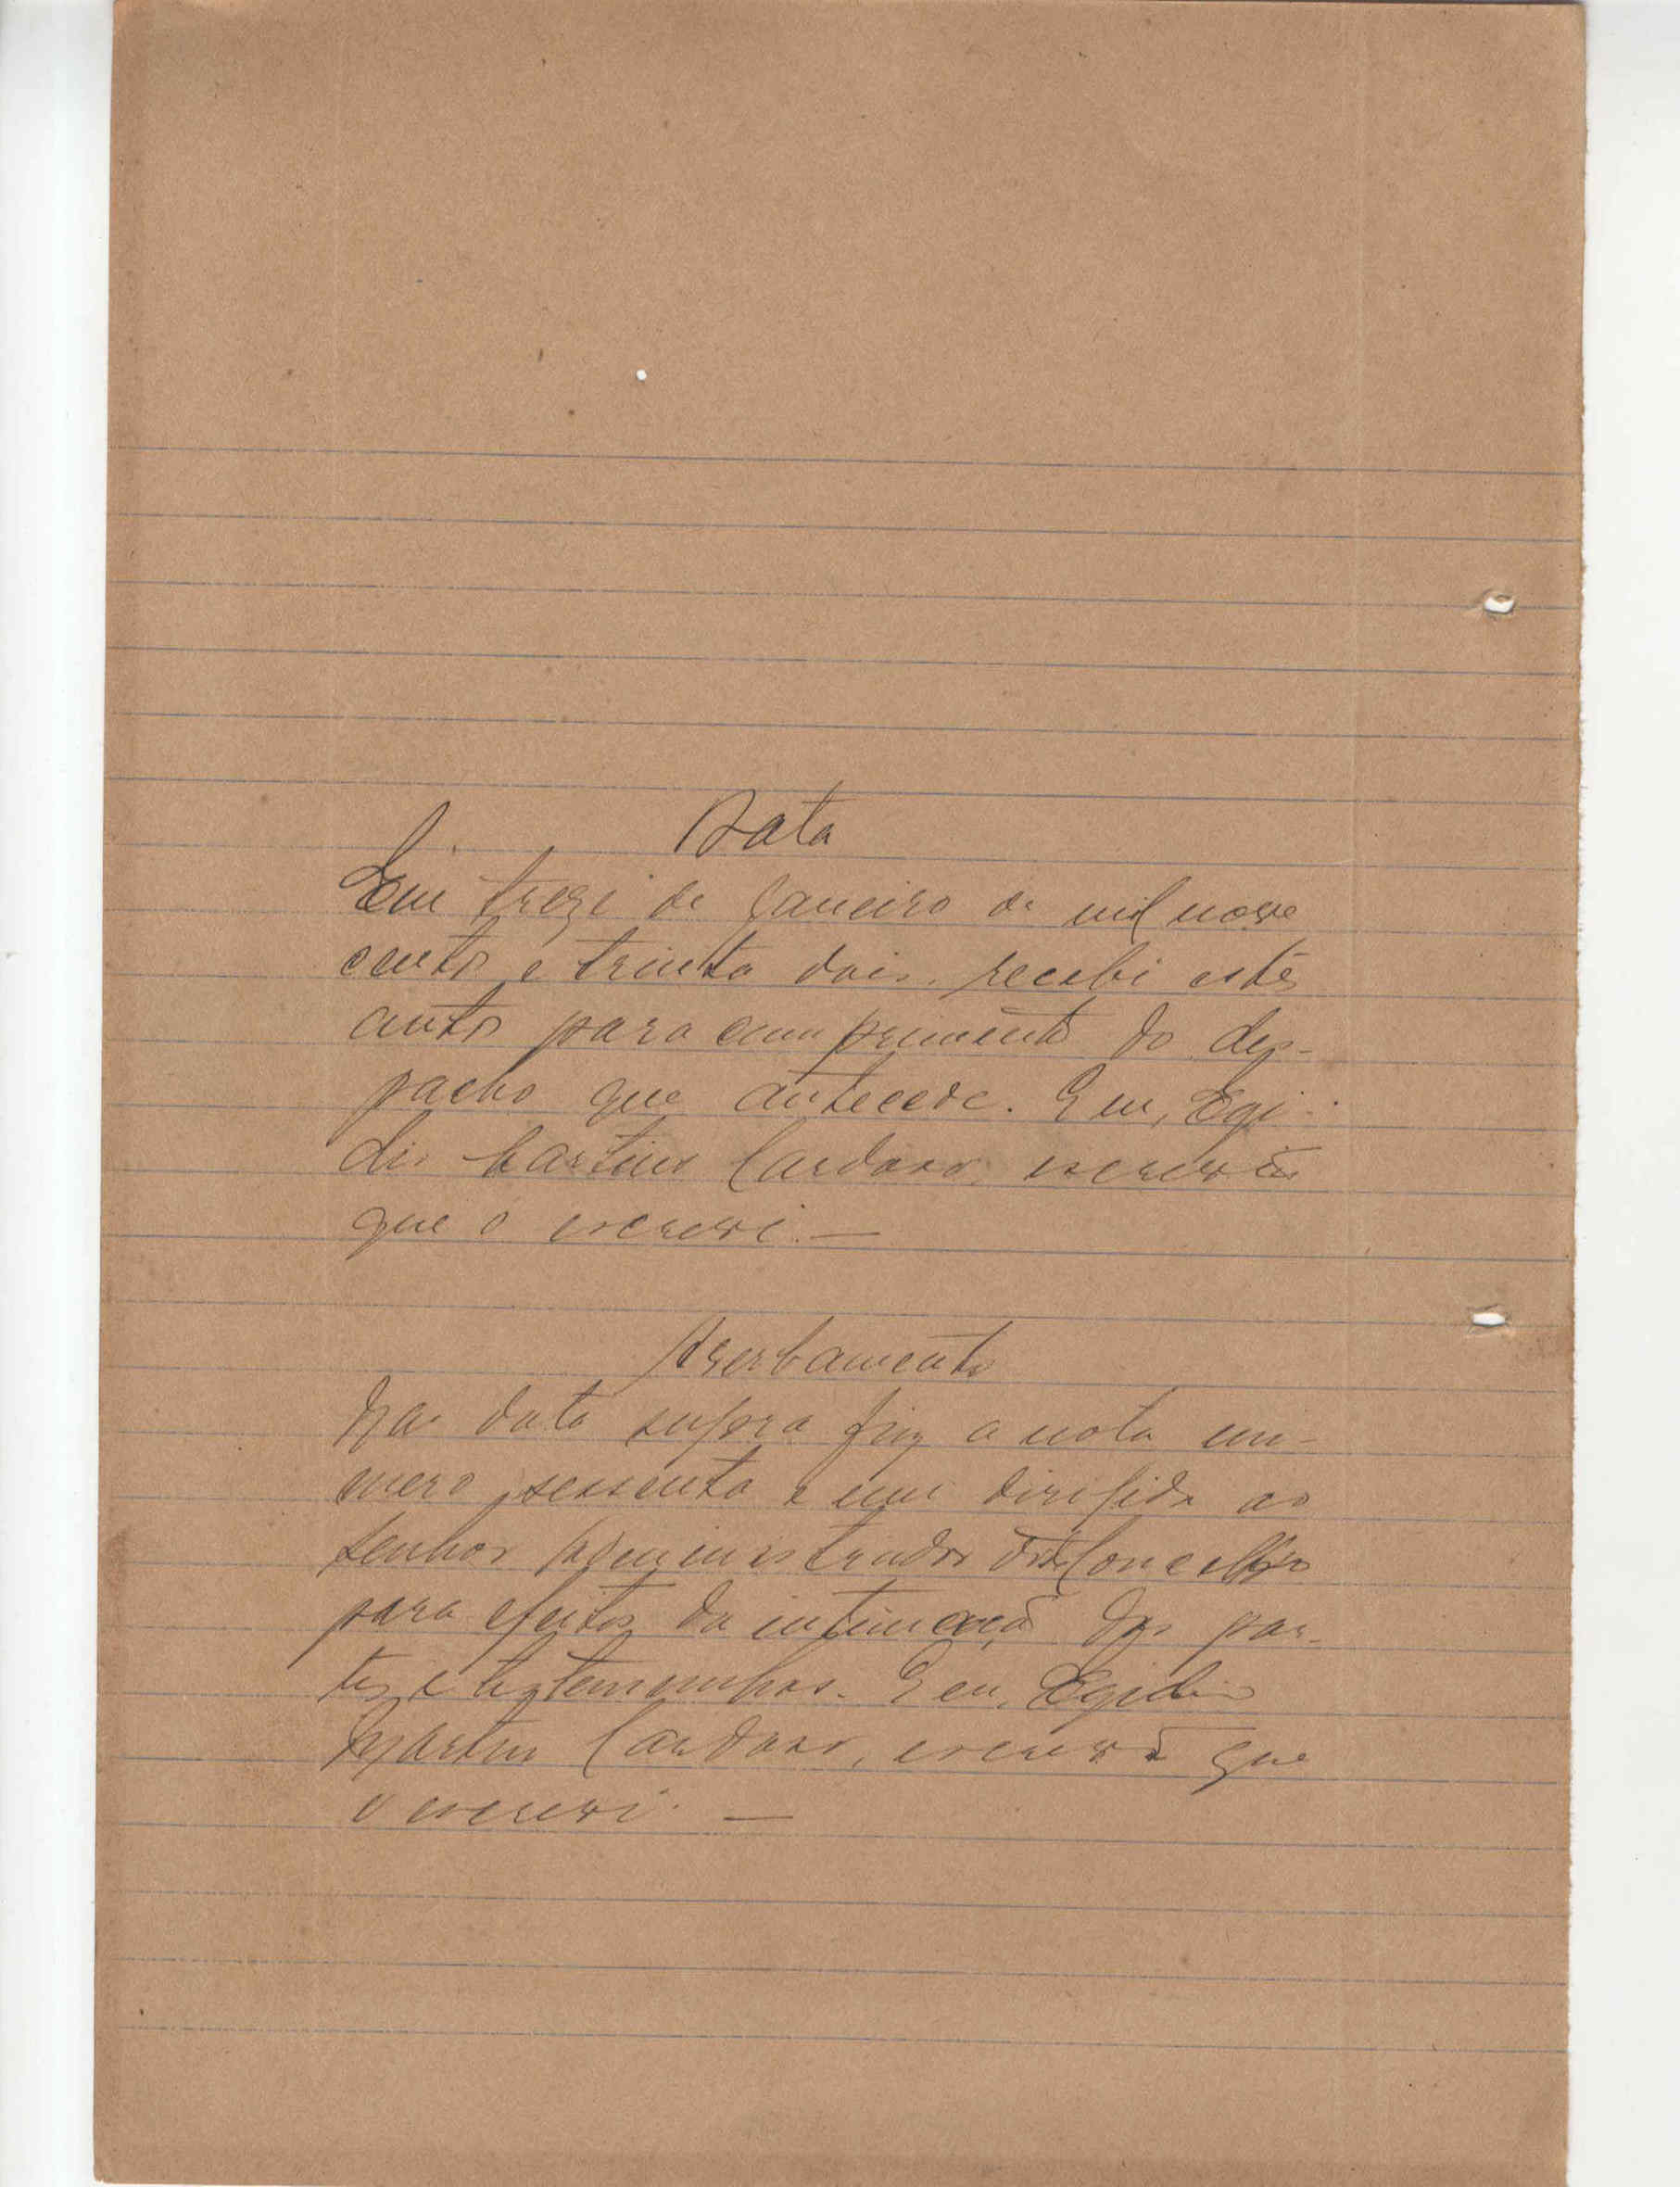 Data
Em treze de Janeiro de mil nove
centos e trinta dois, recebi estes
autos para cumprimento do des-
pacho que antecede. E eu, Egi-
dio Martins Cardoso, escrivão
que o escrevi. —
Averbamento
Na data supra fiz a nota nu-
mero sessenta e um dirigida ao
senhor Administrador do Concelho
para efeitos da intimação das par-
tes e testemunhas. E eu, Egidio
Martins Cardoso, escrivão que
o escrevi. —